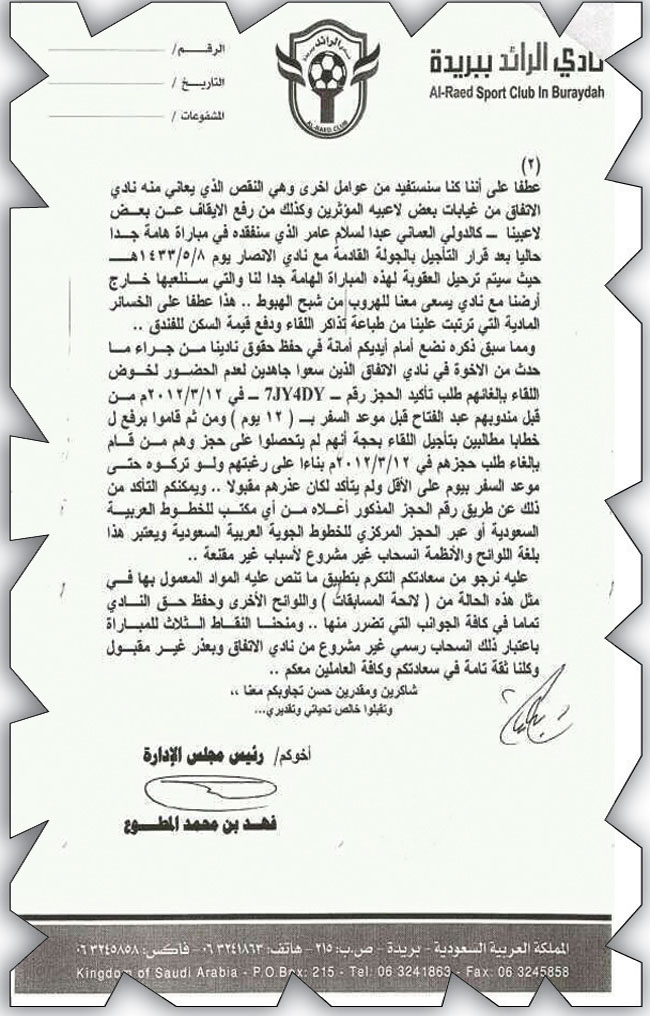 الرقم/
التاريخ /
المشفوعات /
الرائد
AL-RAED CLUB
نادي الرائد ببريدة
Al-Raed Sport Club In Buraydah
(٢)
عطفا على أننا كنا سنستفيد من عوامل اخرى وهي النقص الذي يعاني منه نادي
الاتفاق من غيابات بعض لاعبيه المؤثرين وكذلك من رفع الايقاف عن بعض
لاعبينا ــ كالدولي العماني عبدا لسلام عامر الذي سنفقده في مباراة هامة جدا
حاليا بعد قرار التأجيل بالجولة القادمة مع نادي الانصار يوم ١٤٣٣/٥/٨هــ
حيث سيتم ترحيل العقوبة لهذه المباراة الهامة جدا لنا والتي سنلعبها خارج
أرضنا مع نادي يسعى معنا للهروب من شبح الهبوط .. هذا عطفا على الخسائر
المادية التي ترتبت علينا من طباعة تذاكر اللقاء ودفع قيمة السكن للفندق ..
ومما سبق ذكره نضع أمام أيديكم أمانة في حفظ حقوق نادينا من جراء ما
حدث من الاخوة في نادي الاتفاق الذين سعوا جاهدين لعدم الحضور لخوض
اللقاء بإلغائهم طلب تأكيد الحجز رقم ــ 7JY4DY ــ في ٢٠١٢/٣/١٢م من
قبل مندوبهم عبد الفتاح قبل موعد السفر بــ ( ١٢ يوم ) ومن ثم قاموا برفع ل
خطابا مطالبين بتأجيل اللقاء بحجة أنهم لم يتحصلوا على حجز وهم من قام
بإلغاء طلب حجزهم في ٢٠١٢/٣/١٢م بناءا على رغبتهم ولو تركوه حتى
موعد السفر بيوم على الأقل ولم يتأكد لكان عذرهم مقبولا .. ويمكنكم التأكد من
ذلك عن طريق رقم الحجز المذكور أعلاه من أي مكتب للخطوط العربية
السعودية أو عبر الحجز المركزي للخطوط الجوية العربية السعودية ويعتبر هذا
بلغة اللوائح والأنظمة انسحاب غير مشروع لأسباب غير مقنعة ..
عليه نرجو من سعادتكم التكرم بتطبيق ما تنص عليه المواد المعمول بها في
مثل هذه الحالة من ( لائحة المسابقات ) واللوائح الأخرى وحفظ حق النادي
تماما في كافة الجوانب التي تضرر منها .. ومنحنا النقاط الثلاث للمباراة
باعتبار ذلك انسحاب رسمي غير مشروع من نادي الاتفاق وبعذر غير مقبول
وكلنا ثقة تامة في سعادتكم وكافة العاملين معكم ..
شاكرين ومقدرين حسن تجاوبكم معنا ،،
وتقبلوا خالص تحياتي وتقديري...
أخوكم/ رئيس مجلس الإدارة
فهد بن محمد المطوع
المملكة العربية السعودية - بريدة - ص.ب: ٢١٥ - هاتف: ٠٦٣٢٤١٨٦٣ - فاكس: ٠٦٣٢٤٥٨٥٨
Kingdom of Saudi Arabia - P.O.Box: 215 - Tel: 06 3241863 - Fax: 06 3245858